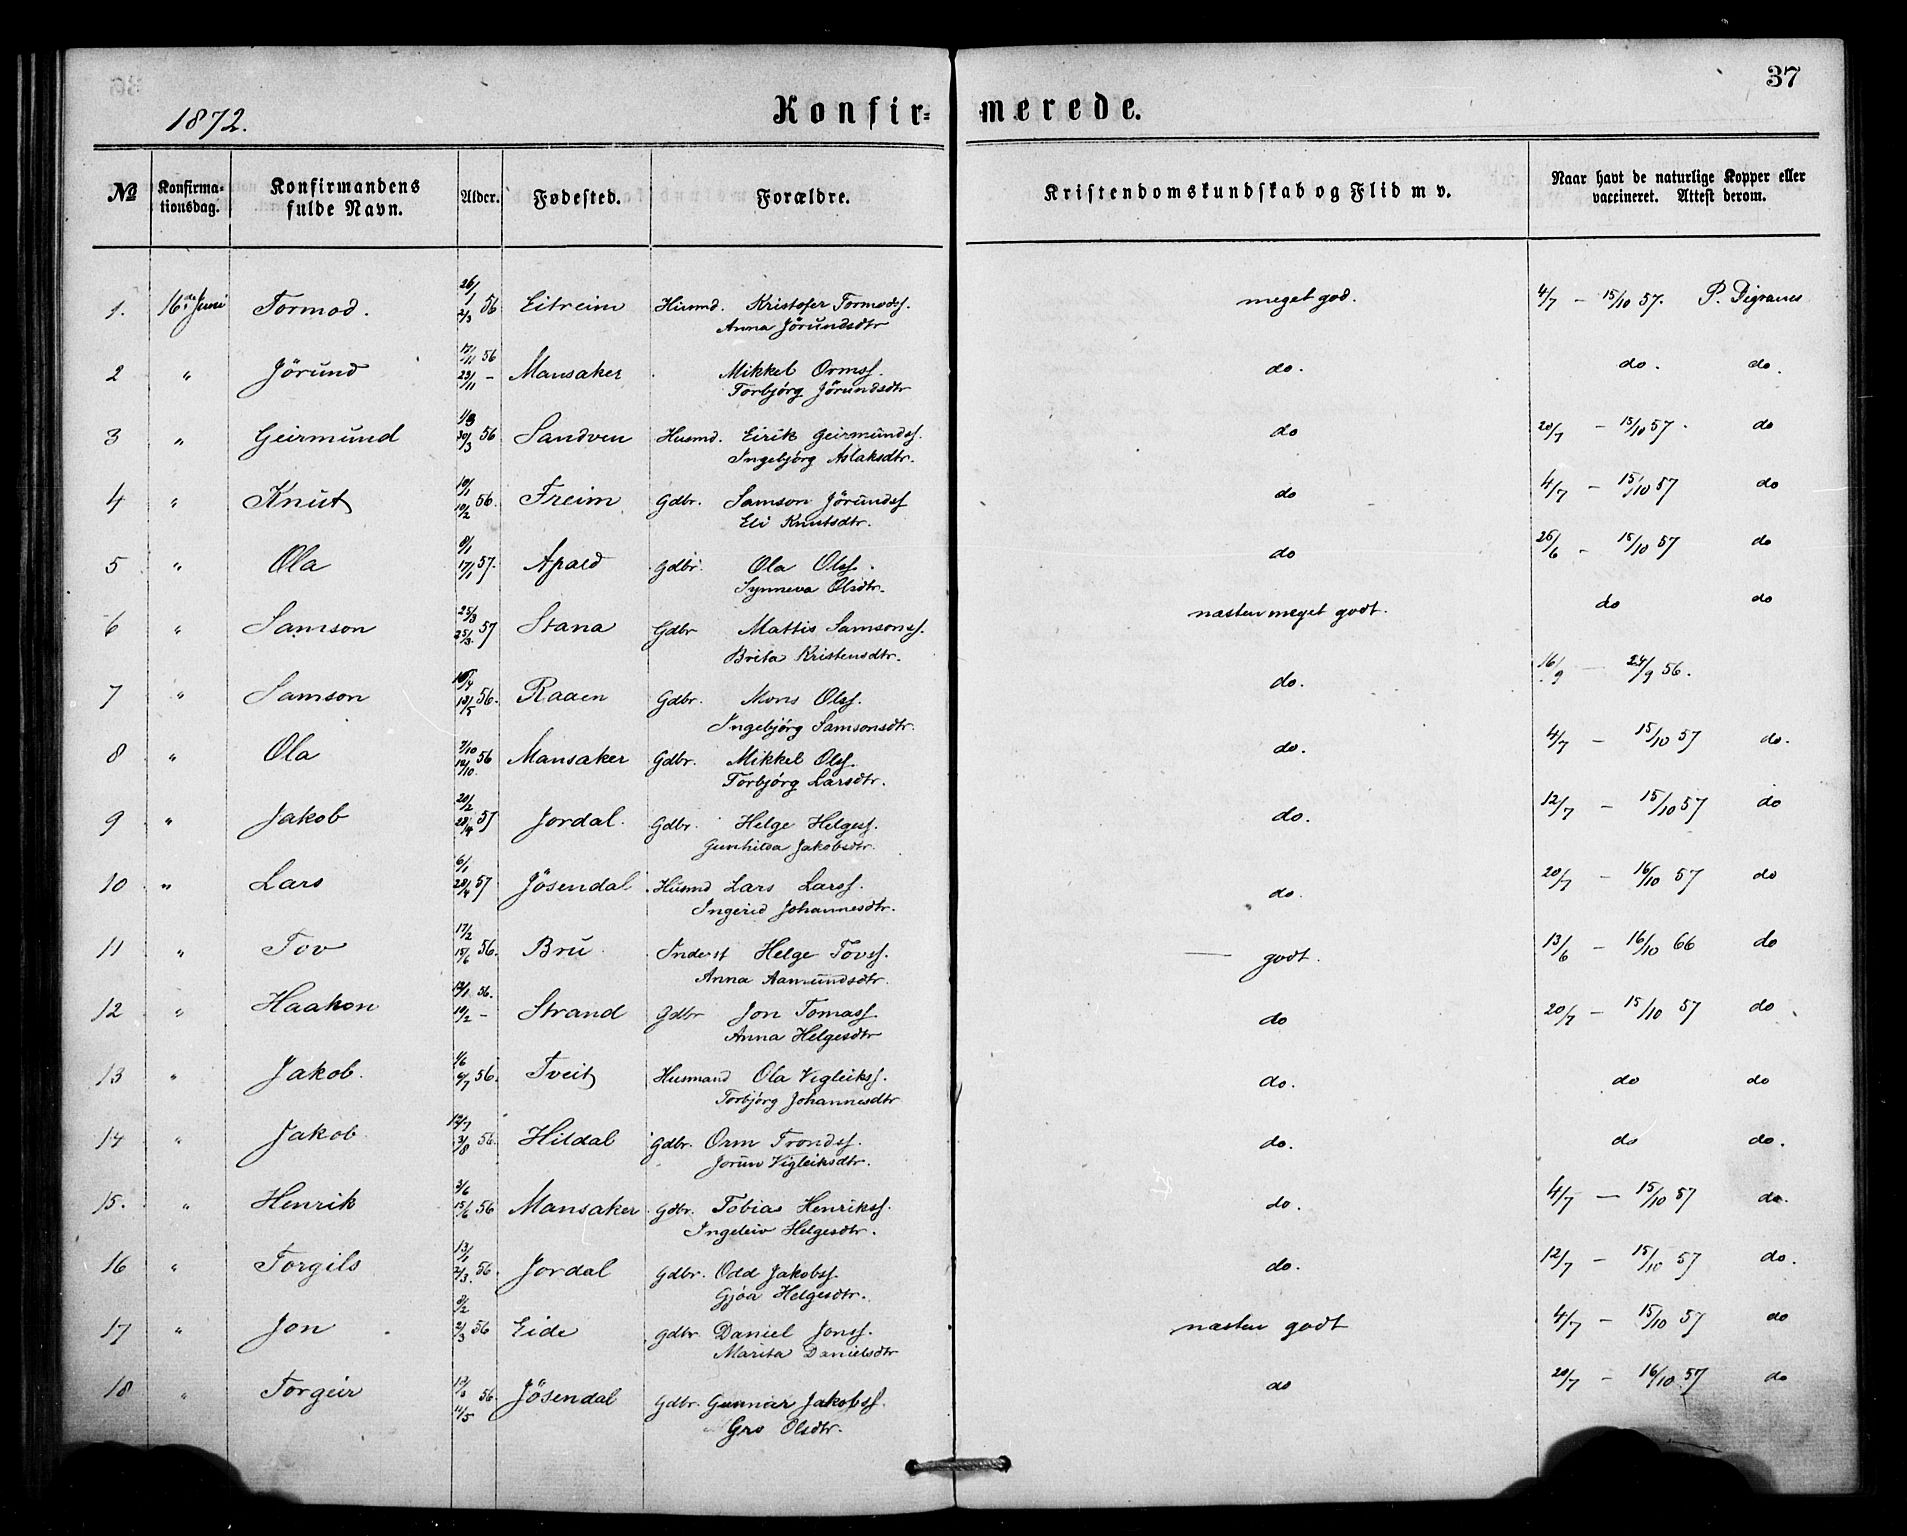 37
1872.
Konfir- merede.
№ Konfirma-tionsdag. Konfirmandens fulde Navn. Alder. Fødested. Forældre. Kristendomskundskab og Flid m v. Naar havt de naturlige Kopper eller vaccineret. Attest derom.
1. 16de Juni Tormod. 26/1 2/3 56 Eitreim Husmd. Kristofer Tormodss. meget god. 4/7 — 15/10 57. P. Digranes
Anna Jörundsdtr
2 " Jörund 17/11 56 23/11 - Mansaker Mikkel Ormss. do. do. do.
Torbjörg Jörundsdtr
3 " Geirmund 30/3 56 Sandven Husmd. Eirik Geirmundss. do 20/7 — 15/10 57. do
Ingebjörg Aslaksdtr.
4 " Knut 10/1 10/2 56. Freim Gdbr. Samson Jörundss do 4/7 — 15/10 57 do
Eli Knutsdtr.
5 " Ola 8/1 17/1 57. Apald Gdbr. Ola Olss. do 26/6 — 15/10 57 do
Synneva Olsdtr.
6 " Samson 25/3 57 Stana Gdbr Mattis Samsonss. næsten meget godt. do do
Brita Kristensdtr.
7 " Samson 13/5 56. Raaen Gdbr. Mons Olss. do. 16/9 — 24/9 56.
Ingebjörg Samsonsdtr.
8 " Ola 7/10 12/10 56 Mansaker Gdbr. Mikkel Olss. do. 4/7 — 15/10 57 do.
Torbjörg Larsdtr.
9 " Jakob 20/2 28/4 57 Jordal. Gdbr. Helge Helgess. do. 12/7 — 15/10 57 do
Gunhilda Jakobsdtr.
10 " Lars 6/1 28/4 57 Jösendal Husmd Lars Larss. do. 20/7 — 16/10 57 do
Ingerid Johannesdtr.
11 " Tov 17/2 15/6 56. Bru Inderst Helge Tovss. — godt. 13/6 — 16/10 66 do
Anna Aamundsdtr.
12 " Haakon 56. 10/2 - Strand Gdbr Jon Tomass. do 20/7 — 15/10 57 do
Anna Helgesdtr
13 " Jakob. 1/6 6/7 56. Tveit Husmand Ola Vigleikss. do. do do
Torbjörg Johannesdtr
14 " Jakob 12/7 3/8 56 Hildal Gdbr. Orm Trondss. do. do do.
Jorun Vigleiksdtr.
15. " Henrik 3/6 15/6 56 Mansaker Gdbr. Tobias Henrikss. do. 4/7 — 15/10 57 do.
Ingeleiv Helgesdtr.
16 " Torgils 13/1 2/3. 56. Jordal Gdbr. Odd Jakobss. do. 12/7 — 15/10 57 do.
Gjöa Helgesdtr.
17 " Jon 8/2 2/3 56 Eide Gdbr. Daniel Jonss. næsten godt 4/7 — 15/10 57 do
Marita Danielsdtr
18 " Torgeir 11/5 56. Jösendal Gdbr. Gunnar Jakobss. do 20/7 — 16/10 57 do
Gro Olsdtr.